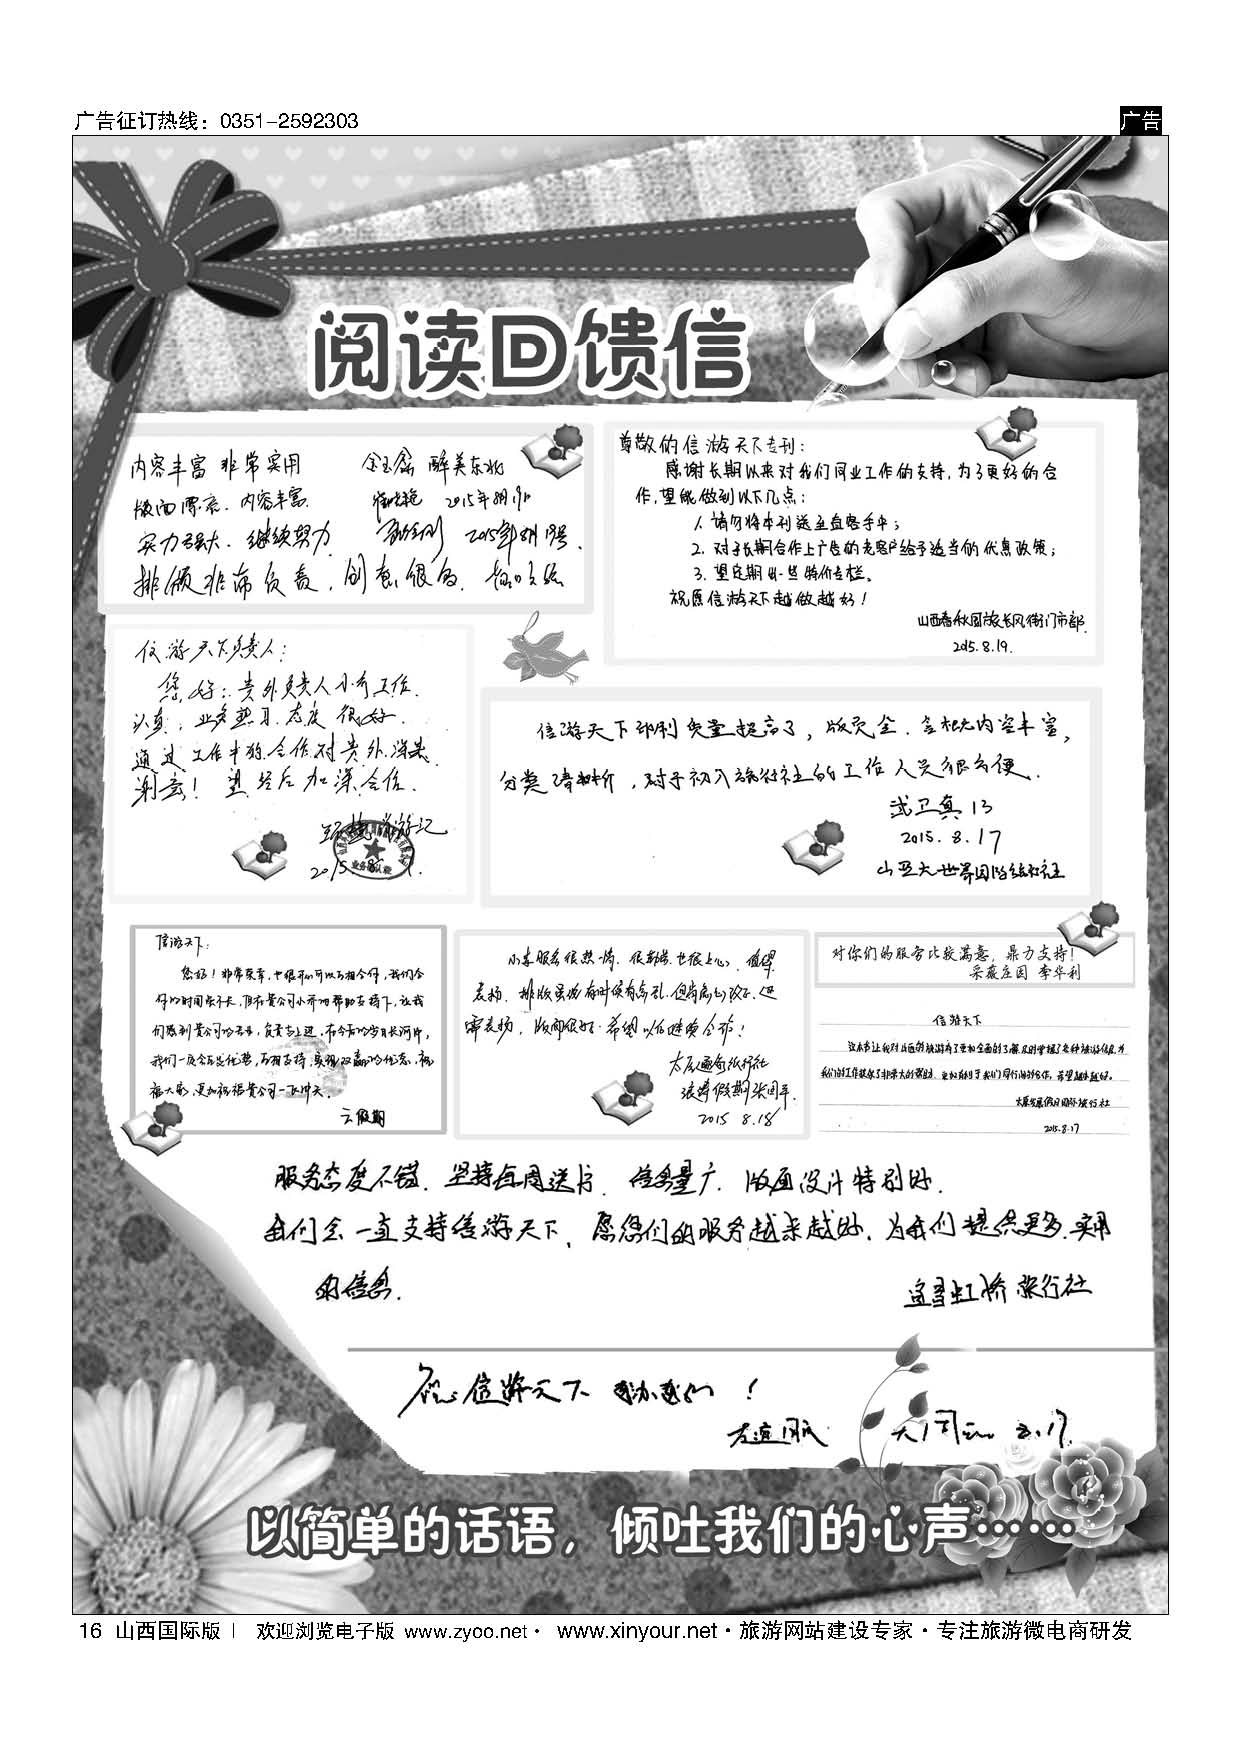 广告征订热线：0351-2592303
广告
阅读回馈信
内容丰富 非常实用
醉美东北
版面漂亮、内容丰富
2015年8月19日
实力强大、继续努力
2015年8月19号.
排版非常负责，创意很多.
尊敬的信游天下专刊：
感谢长期以来对我们同业工作的支持,为了更好的合
作,望能做到以下几点：
1. 请勿将本刊送至直客手中；
2. 对于长期合作上广告的老客户给予适当的优惠政策；
3. 望定期出一些特价专栏。
祝愿信游天下越做越好！
山西春秋国旅长风街门市部.
2015.8.19.
信游天下负责人：
您好：贵刊负责人小乔工作.
认真，业务熟习.态度很好.
通过工作中的合作.对贵刊.深表.
谢意！望今后加深合作.
信游天下印刷质量提高了，版完全.
分类清晰，对于初入旅行社的工作人员很方便.
武卫真 13
2015.8.17
山西大世界国际旅行社
信游天下：
您好！非常荣幸,也很开心可以互相合作,我们合
作的时间虽不长,但在贵公司小乔的帮助支持下,让我
们感到贵公司的专业,负责与上进,在今后的岁月长河中,
我们一定会互优势,互相支持,实现双赢的优态,祝
福大易,更加祝福贵公司一飞冲天.
云假期
小李服务很热情，很勤快.也很上心，值得
表扬，排版虽然有时候有点乱.但有启心改正.进
需表扬，版面很好.希望以后继续合作！
浪漫假期 张国平.
2015 8.18
对你们的服务比较满意，鼎力支持！
采薇庄园 李华利
信游天下
这本书让我对山西的旅游有了更加全面的了解,及时掌握了各种旅游信息,为
我们的工作提供了非常大的帮助，更加有利于我们同行间的合作，希望越来越好。
太原发展假日国际旅行社
2015.8.17
服务态度不错、坚持每周送片、信息量广、版面设计特别好.
我们会一直支持信游天下，愿您们的服务越来越好，为我们提供更多.实用
的信息.
旅行社
信游天下
8.17.
以简单的话语，倾吐我们的心声……
16 山西国际版 | 欢迎浏览电子版 www.zyoo.net· www.xinyour.net·旅游网站建设专家·专注旅游微电商研发